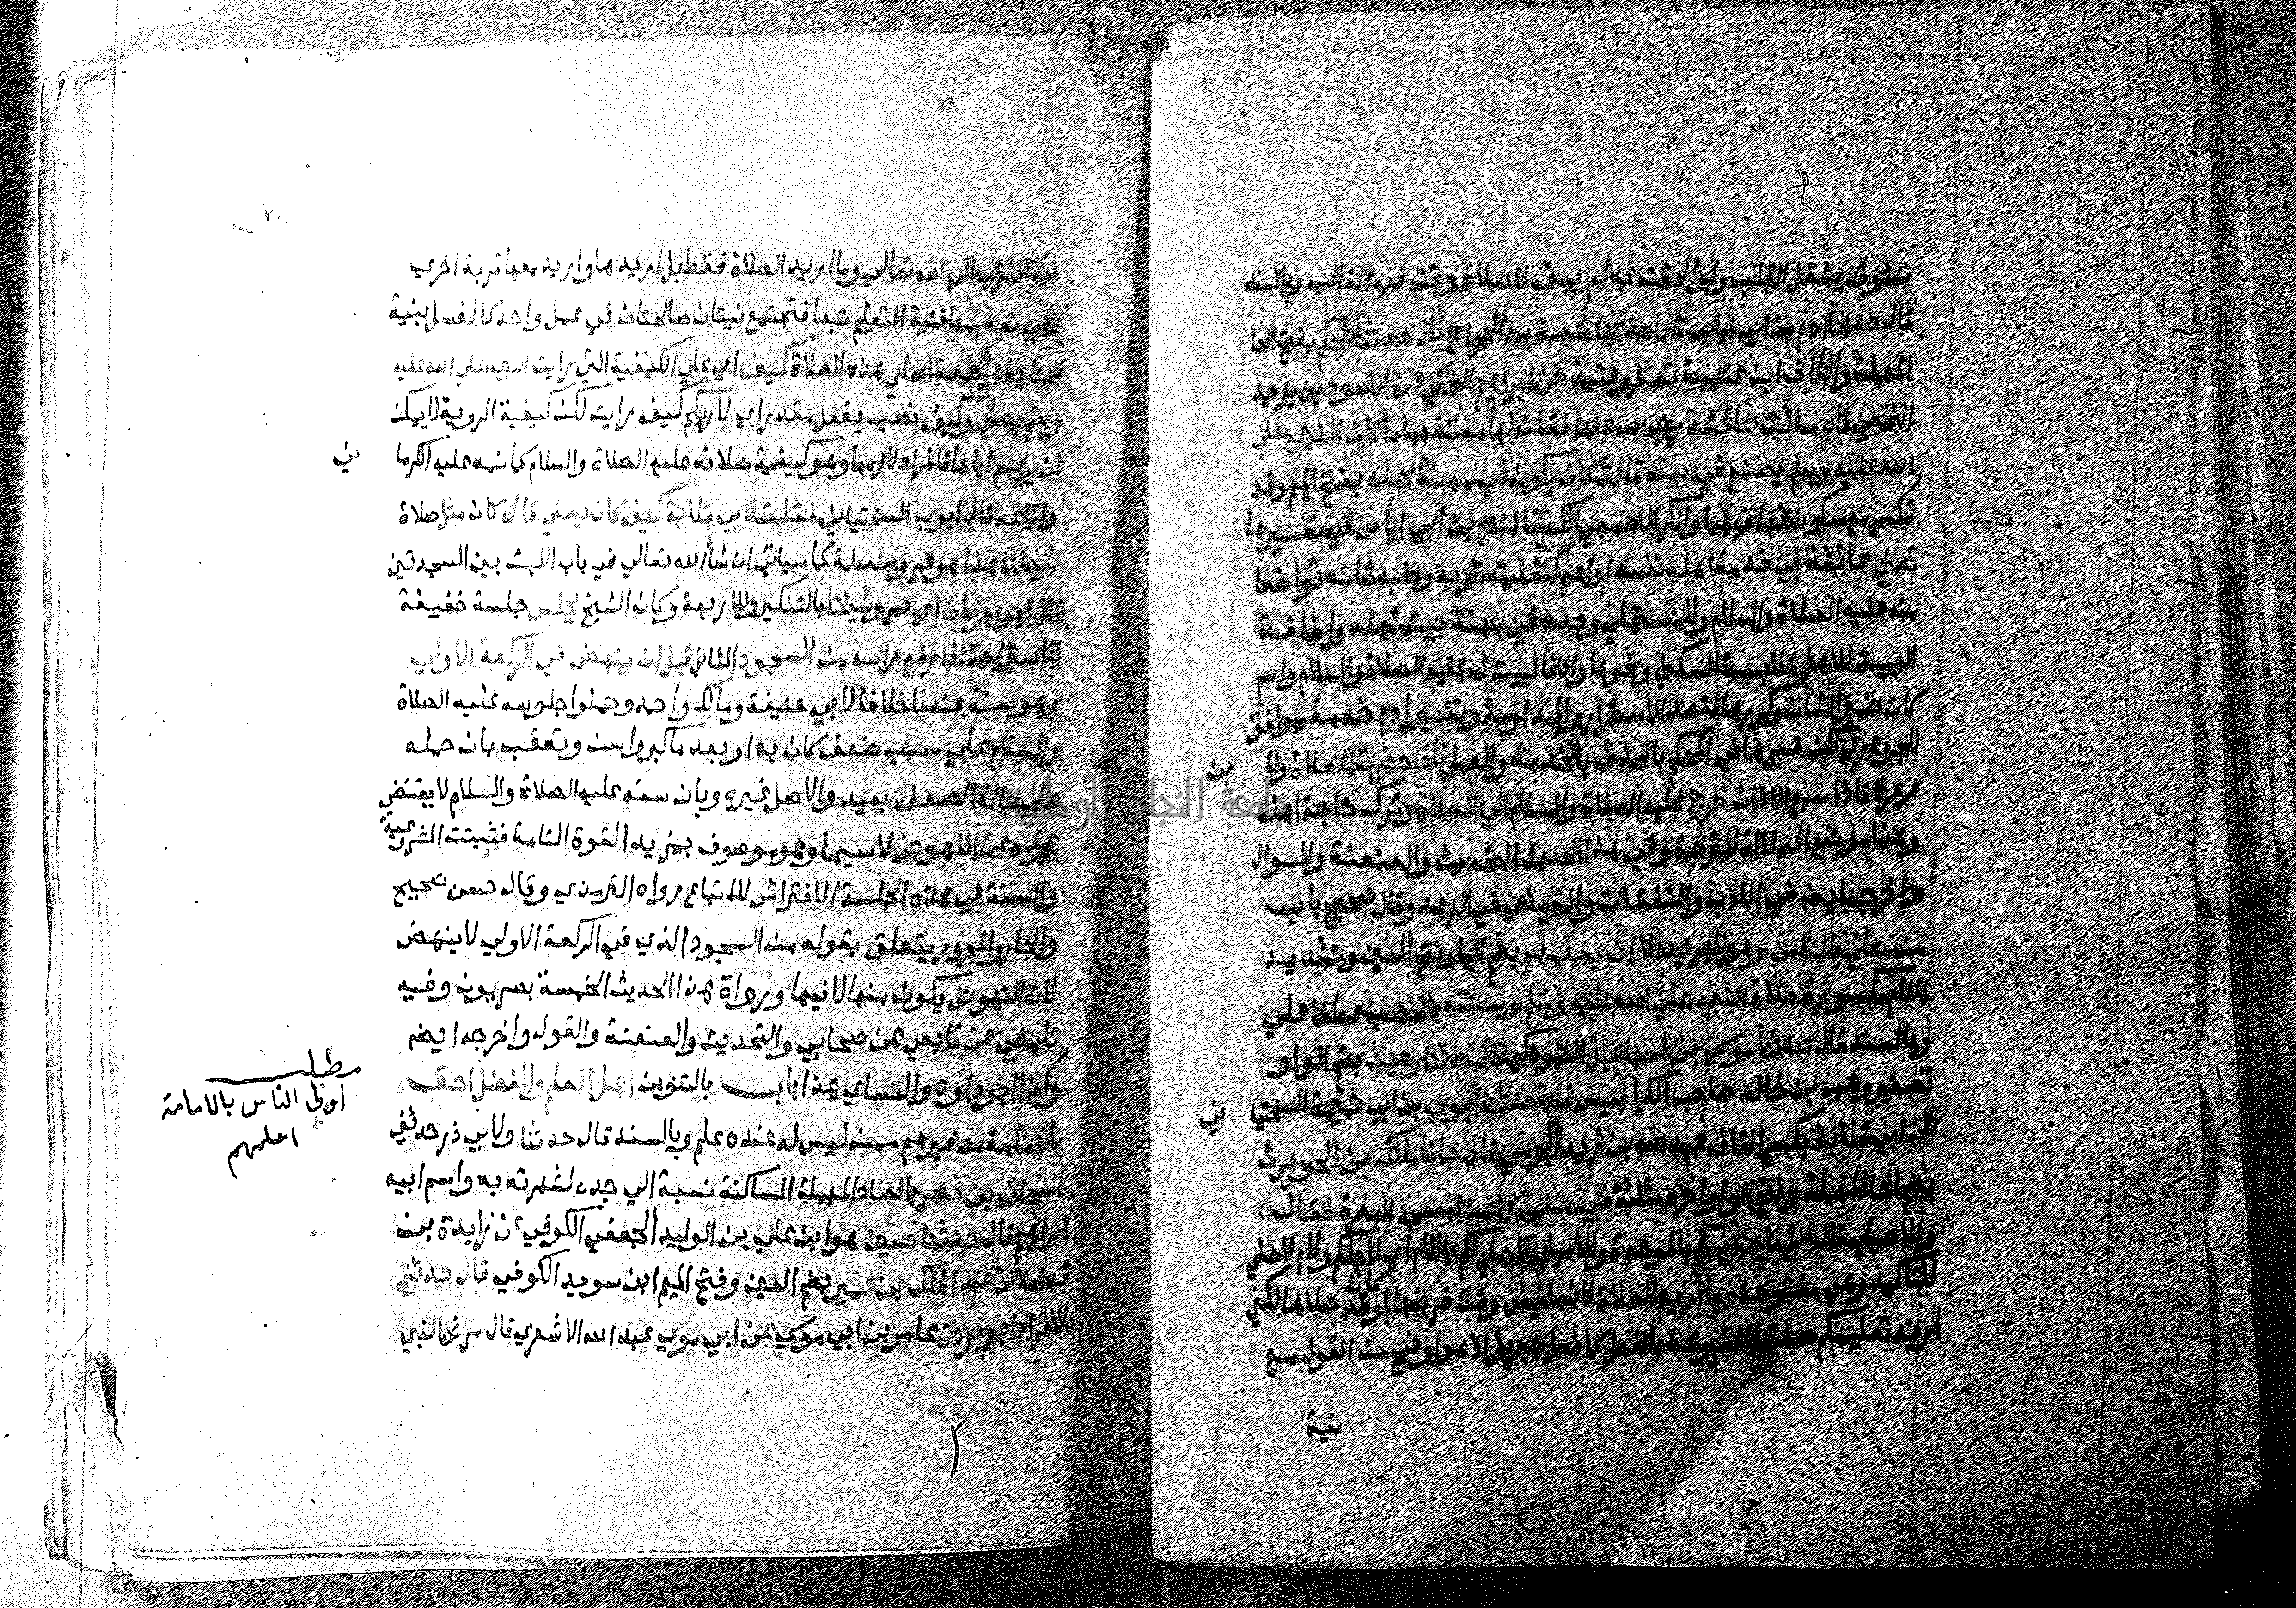 تشوق يشغل القلب ولو الحقت به لم يبق للصلاة وقت في الغالب وبالسند
قال حدثنا ادم بن ابي اياس قال حدثنا شعبة بن الحجاج قال حدثنا الحكم بفتح الحا
المهملة والكاف ابن عتيبة تصغير عتبة عن ابراهيم النخعي عن الاسود بن يزيد
النخعي قال سالت عائشة رضي الله عنها فقلت لها مستفهما ما كان النبي صلي
الله عليه وسلم يصنع في بيته قالت كان يكون في مهنة اهله بفتح الميم وقد
تكسر مع سكون الها فيهما وانكر الاصمعي الكسر قال ادم بن ابي اياس في تفسيرها
تعني عائشة في خدمة اهله نفسه او اعم كتفليته ثوبه وحلبه شاته تواضعا
منه عليه الصلاة والسلام وللمستملي وحده في مهنة بيت اهله واضافة
البيت للاهل لملابسة السكني ونحوها والا فالبيت له عليه الصلاة والسلام واسم
كان ضمير الشان وكررها لقصد الاستمرار والمداومة وتفسير ادم خدمة موافق
للجوهري لكن فسرها في المحكم بالحذق بالخدمة والعمل فاذا حضرت الصلاة ولا بن
عرعرة فاذا سمع الاذان خرج عليه الصلاة والسلام الي الصلاة وترك حاجة اهله
وهذا موضع الدلالة للترجمة وفي هذا الحديث التحديث والعنعنة والسوال
واخرجه ايضه في الادب والنفقات والترمذي في الزهد وقال صحيح باب
من صلي بالناس وهو لا يريد الا ان يعلمهم بضم اليا وفتح العين وتشديد
اللام مكسورة صلاة النبي صلي الله عليه وسلم وسنته بالنصب عطفا علي
وبالسند قال حدثنا موسي بن اسماعيل التبوذكي قال حدثنا وهيب بضم الواو
تصغير وهب بن خالد صاحب الكرابيس قال حدثنا ايوب بن ابي تميمة السختيا ني
عن ابي قلابة بكسر القاف عبد الله بن زيد الجرمي قال جانا مالك بن الحويرث
بضم الحا المهملة وفتح الواو اخره مثلثة في مسجدنا هذا مسجد البصرة فقال
وللاصيلي قال اني لاصلي بكم بالموحدة وللاصيلي لاصلي لكم باللام اي لاجلكم ولام لاصلي
للتاكيد وهي مفتوحة وما اريد الصلاة لانه ليس وقت فرضها او كان قد صلاها لكني
اريد تعليمكم صفتها المشروعة بالفعل كما فعل جبريل اذ هو اوضح من القول مع
نية
نية التقرب الي الله تعالي وما اريد الصلاة فقط بل اريدها واريد معها قربة اخري
وهي تعليمها فنية التعليم تبعا فتجتمع نيتان صالحتان في عمل واحد كالغسل بنية
الجنابة والجمعة اصلي هذه الصلاة كيف اي علي الكيفية التي رايت النبي صلي الله عليه
وسلم يصلي وكيف نصب بفعل مقدر اي لاريكم كيف رايت لكن كيفية الروية لا يمكن
ان يريهم اياها فالمراد لازمها وهو كيفية صلاته عليه الصلاة والسلام كما نبه عليه الكرما ني
واتباعه قال ايوب السختياني فقلت لابي قلابة كيف كان يصلي قال كان مثل صلاة
شيخنا هذا هو عمرو بن سلمة كما سياتي ان شا الله تعالي في باب اللبث بين السجدتين
قال ايوب وكان اي عمرو شيخا بالتنكير وللاربعة وكان الشيخ يجلس جلسة خفيفة
للاستراحة اذا رفع راسه من السجود الثاني قبل ان ينهض في الركعة الاولي
وهو سنة عندنا خلافا لابي حنيفة ومالك واحمد وحملوا جلوسه عليه الصلاة
والسلام علي سبب ضعف كان به او بعد ما كبر واسن وتعقب بان حمله
علي حالة الضعف بعيد والاصل غيره وبان سنه عليه الصلاة والسلام لا يقتضي
عجزه عن النهوض لا سيما وهو موصوف بمزيد القوة التامة فثبتت المشروعية
والسنة في هذه الجلسة الافتراش للاتباع رواه الترمذي وقال حسن صحيح
والجار والمجرور يتعلق بقوله من السجود الذي في الركعة الاولي لا بينهض
لان النهوض يكون منها لا فيها ورواة هذا الحديث الخمسة بصريون وفيه
تابعي عن تابعي عن صحابي والتحديث والعنعنة والقول واخرجه ايضه
وكذا ابو داود والنساي هذا باب بالتنوين اهل العلم والفضل احق
بالامامة من غيرهم ممن ليس له عنده علم وبالسند قال حدثنا ولابي ذر حدثني
اسحاق بن نصر بالصاد المهملة الساكنة نسبة الي جده لشهرته به واسم ابيه
ابراهيم قال حدثنا حسين هو ابن علي بن الوليد الجعفي الكوفي عن زايدة بن
قدامة عن عبد الملك بن عمير بضم العين وفتح الميم ابن سويد الكوفي قال حدثني
بالافراد ابو بردة عامر بن ابي موسي عن ابي موسي عبد الله الاشعري قال مرض النبي
مطلب
اولي الناس بالامامة
اعلمهم
جامعة النجاح الوطنية